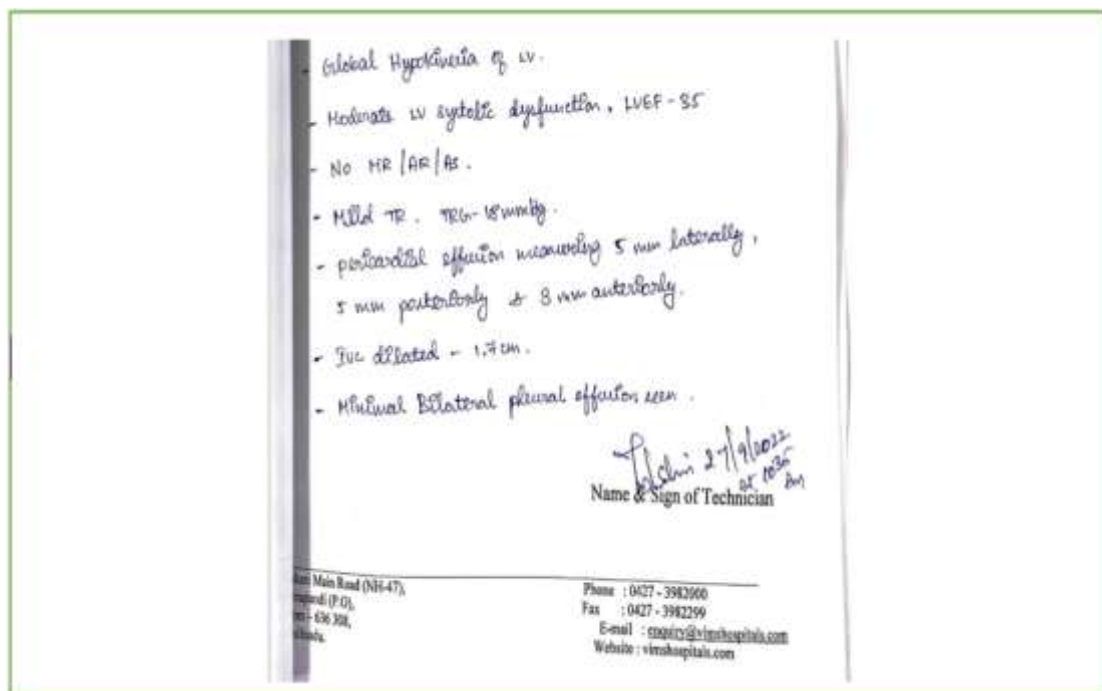 - Global Hypokinesia of LV.
- Moderate LV systolic dysfunction, LVEF - 35
- No MR/AR/AS.
- Mild TR. TRG - 18 mmHg.
- pericardial effusion measuring 5 mm laterally,
5 mm posteriorly & 3 mm anteriorly.
- IVC dilated - 1.7 cm.
- Minimal Bilateral pleural effusion seen.
27/9/2022
at 1035
Am
Name & Sign of Technician
Main Road (NH-47),
(P.O),
- 636 308,
Phone : 0427 - 3982000
Fax : 0427 - 3982299
E-mail : enquiry@vimshospitals.com
Website : vimshospitals.com